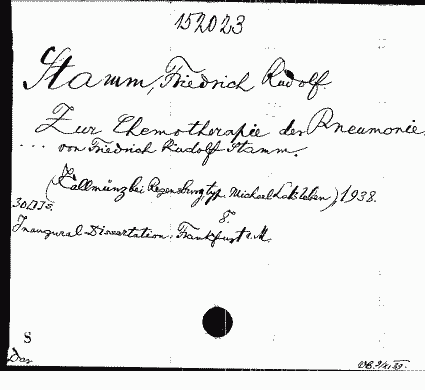 152023
Stamm, Friedrich Rudolf.
Zur Chemotherapie der Pneumonie.
... von Friedrich Rudolf Stamm.
(Kallmünz bei Regensburg, typ. Michael Lassleben), 1938.
30 I 37 S. 8°.
Inaugural-Dissertation. Frankfurt a.M.
S